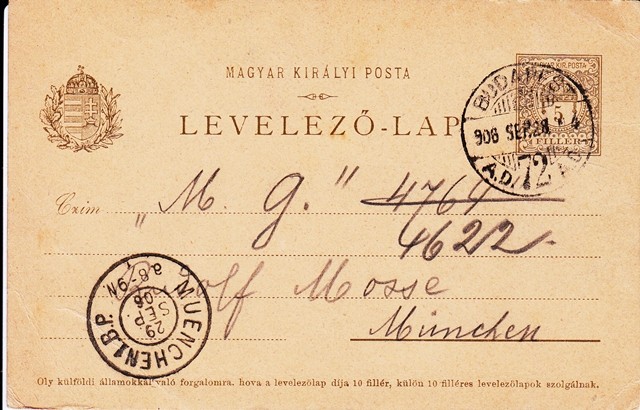 MAGYAR KIRÁLYI POSTA
MAGY. KIR. POSTA
LEVELEZŐ-LAP
FILLÉR
BUDAPEST
908 SEP. 28
72
Czim
„M. G." 4761
4622
Mosse
München
MUENCHEN 1 B.P.
29
SEP.
08
a.8-9N.
Oly külföldi államokkal való forgalomra, hova a levelezőlap díja 10 fillér, külön 10 filléres levelezőlapok szolgálnak.